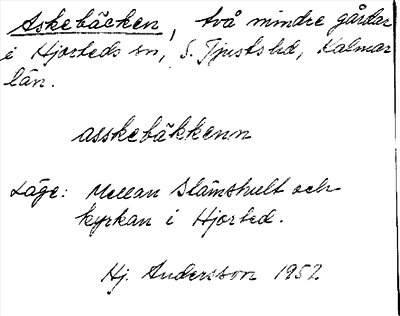 Askebäcken, två mindre gårdar
i Hjorteds sn, S. Tjusts hd, Kalmar
län.
asskebäkkenn
Läge: Mellan Slämshult och
kyrkan i Hjorted.
Hj. Andersson 1952